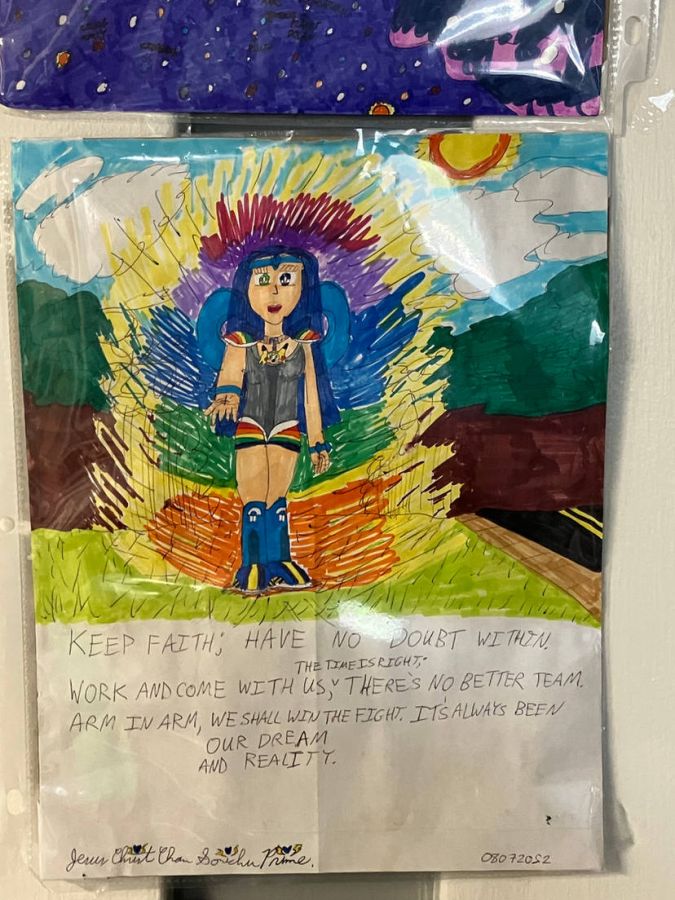 KEEP FAITH; HAVE NO DOUBT WITHIN.
THE TIME IS RIGHT;
WORK AND COME WITH US; THERE'S NO BETTER TEAM.
ARM IN ARM, WE SHALL WIN THE FIGHT. IT'S ALWAYS BEEN
OUR DREAM
AND REALITY.
Jesus Christ Chan Sonichu Prime.